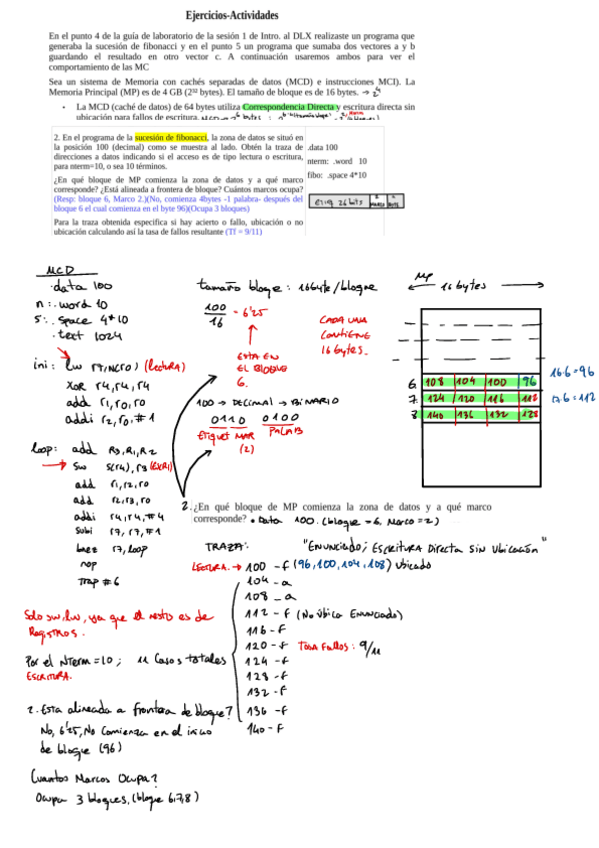 Ejercicios-Actividades
En el punto 4 de la guía de laboratorio de la sesión 1 de Intro. al DLX realizaste un programa que
generaba la sucesión de fibonacci y en el punto 5 un programa que sumaba dos vectores a y b
guardando el resultado en otro vector c. A continuación usaremos ambos para ver el
comportamiento de las MC
Sea un sistema de Memoria con cachés separadas de datos (MCD) e instrucciones MCI). La
Memoria Principal (MP) es de 4 GB (2³² bytes). El tamaño de bloque es de 16 bytes. → 2⁴
• La MCD (caché de datos) de 64 bytes utiliza Correspondencia Directa y escritura directa sin
ubicación para fallos de escritura.
2. En el programa de la sucesión de fibonacci, la zona de datos se situó en
la posición 100 (decimal) como se muestra al lado. Obtén la traza de
direcciones a datos indicando si el acceso es de tipo lectura o escritura,
para nterm=10, o sea 10 términos.
.data 100
nterm: .word 10
fibo: .space 4*10
¿En qué bloque de MP comienza la zona de datos y a qué marco
corresponde? ¿Está alineada a frontera de bloque? Cuántos marcos ocupa?
(Resp: bloque 6, Marco 2.)(No, comienza 4bytes -1 palabra- después del
bloque 6 el cual comienza en el byte 96)(Ocupa 3 bloques)
etiq 26 bits 2 MARCO 2
Para la traza obtenida especifica si hay acierto o fallo, ubicación o no
ubicación calculando así la tasa de fallos resultante (Tf = 9/11)
MCD
.data 100
n: .word 10
s: .space 4*10
.text 1024
ini: lw r7,n(r0) (lectura)
xor r4,r4,r4
add r1,r0,r0
addi r2,r0,#1
loop: add R3,R1,R2
→ sw s(r4),r3 (ESCRI)
add r1,r2,r0
add r2,r3,r0
addi r4,r4,#4
subi r7,r7,#1
bnez r7,loop
nop
Trap #6
tamaño bloque: 16byte/bloque
100/16 = 6'25
ESTA EN
EL BLOQUE
6.
CADA UNA
CONTIENE
16 bytes.
100 → DECIMAL → BINARIO
0110 0100
ETIQUET MAR PALAB
(2)
MP
16 bytes
6 108 104 100 96
7. 124 120 116 112
8 140 136 132 128
16·6=96
17·6=112
2. ¿En qué bloque de MP comienza la zona de datos y a qué marco
corresponde? • Data 100. (bloque = 6, Marco = 2)
TRAZA: "ENUNCIADO; ESCRITURA DIRECTA SIN UBICACIÓN"
LECTURA. → 100 - f (96,100,104,108) Ubicado
104 - a
108 - a
112 - f (No Ubica ENUNCIADO)
116 - f
120 - f Tasa Fallos: 9/11
124 - f
128 - f
132 - f
136 - f
140 - f
Solo sw,lw, ya que el resto es de
Registros.
Por el NTerm=10; 11 Casos totales
ESCRITURA.
2. Esta alineada a frontera de bloque?
No, 6'25, No Comienza en el inicio
de bloque (96)
Cuantos Marcos Ocupa?
Ocupa 3 bloques, (bloque 6,7,8)